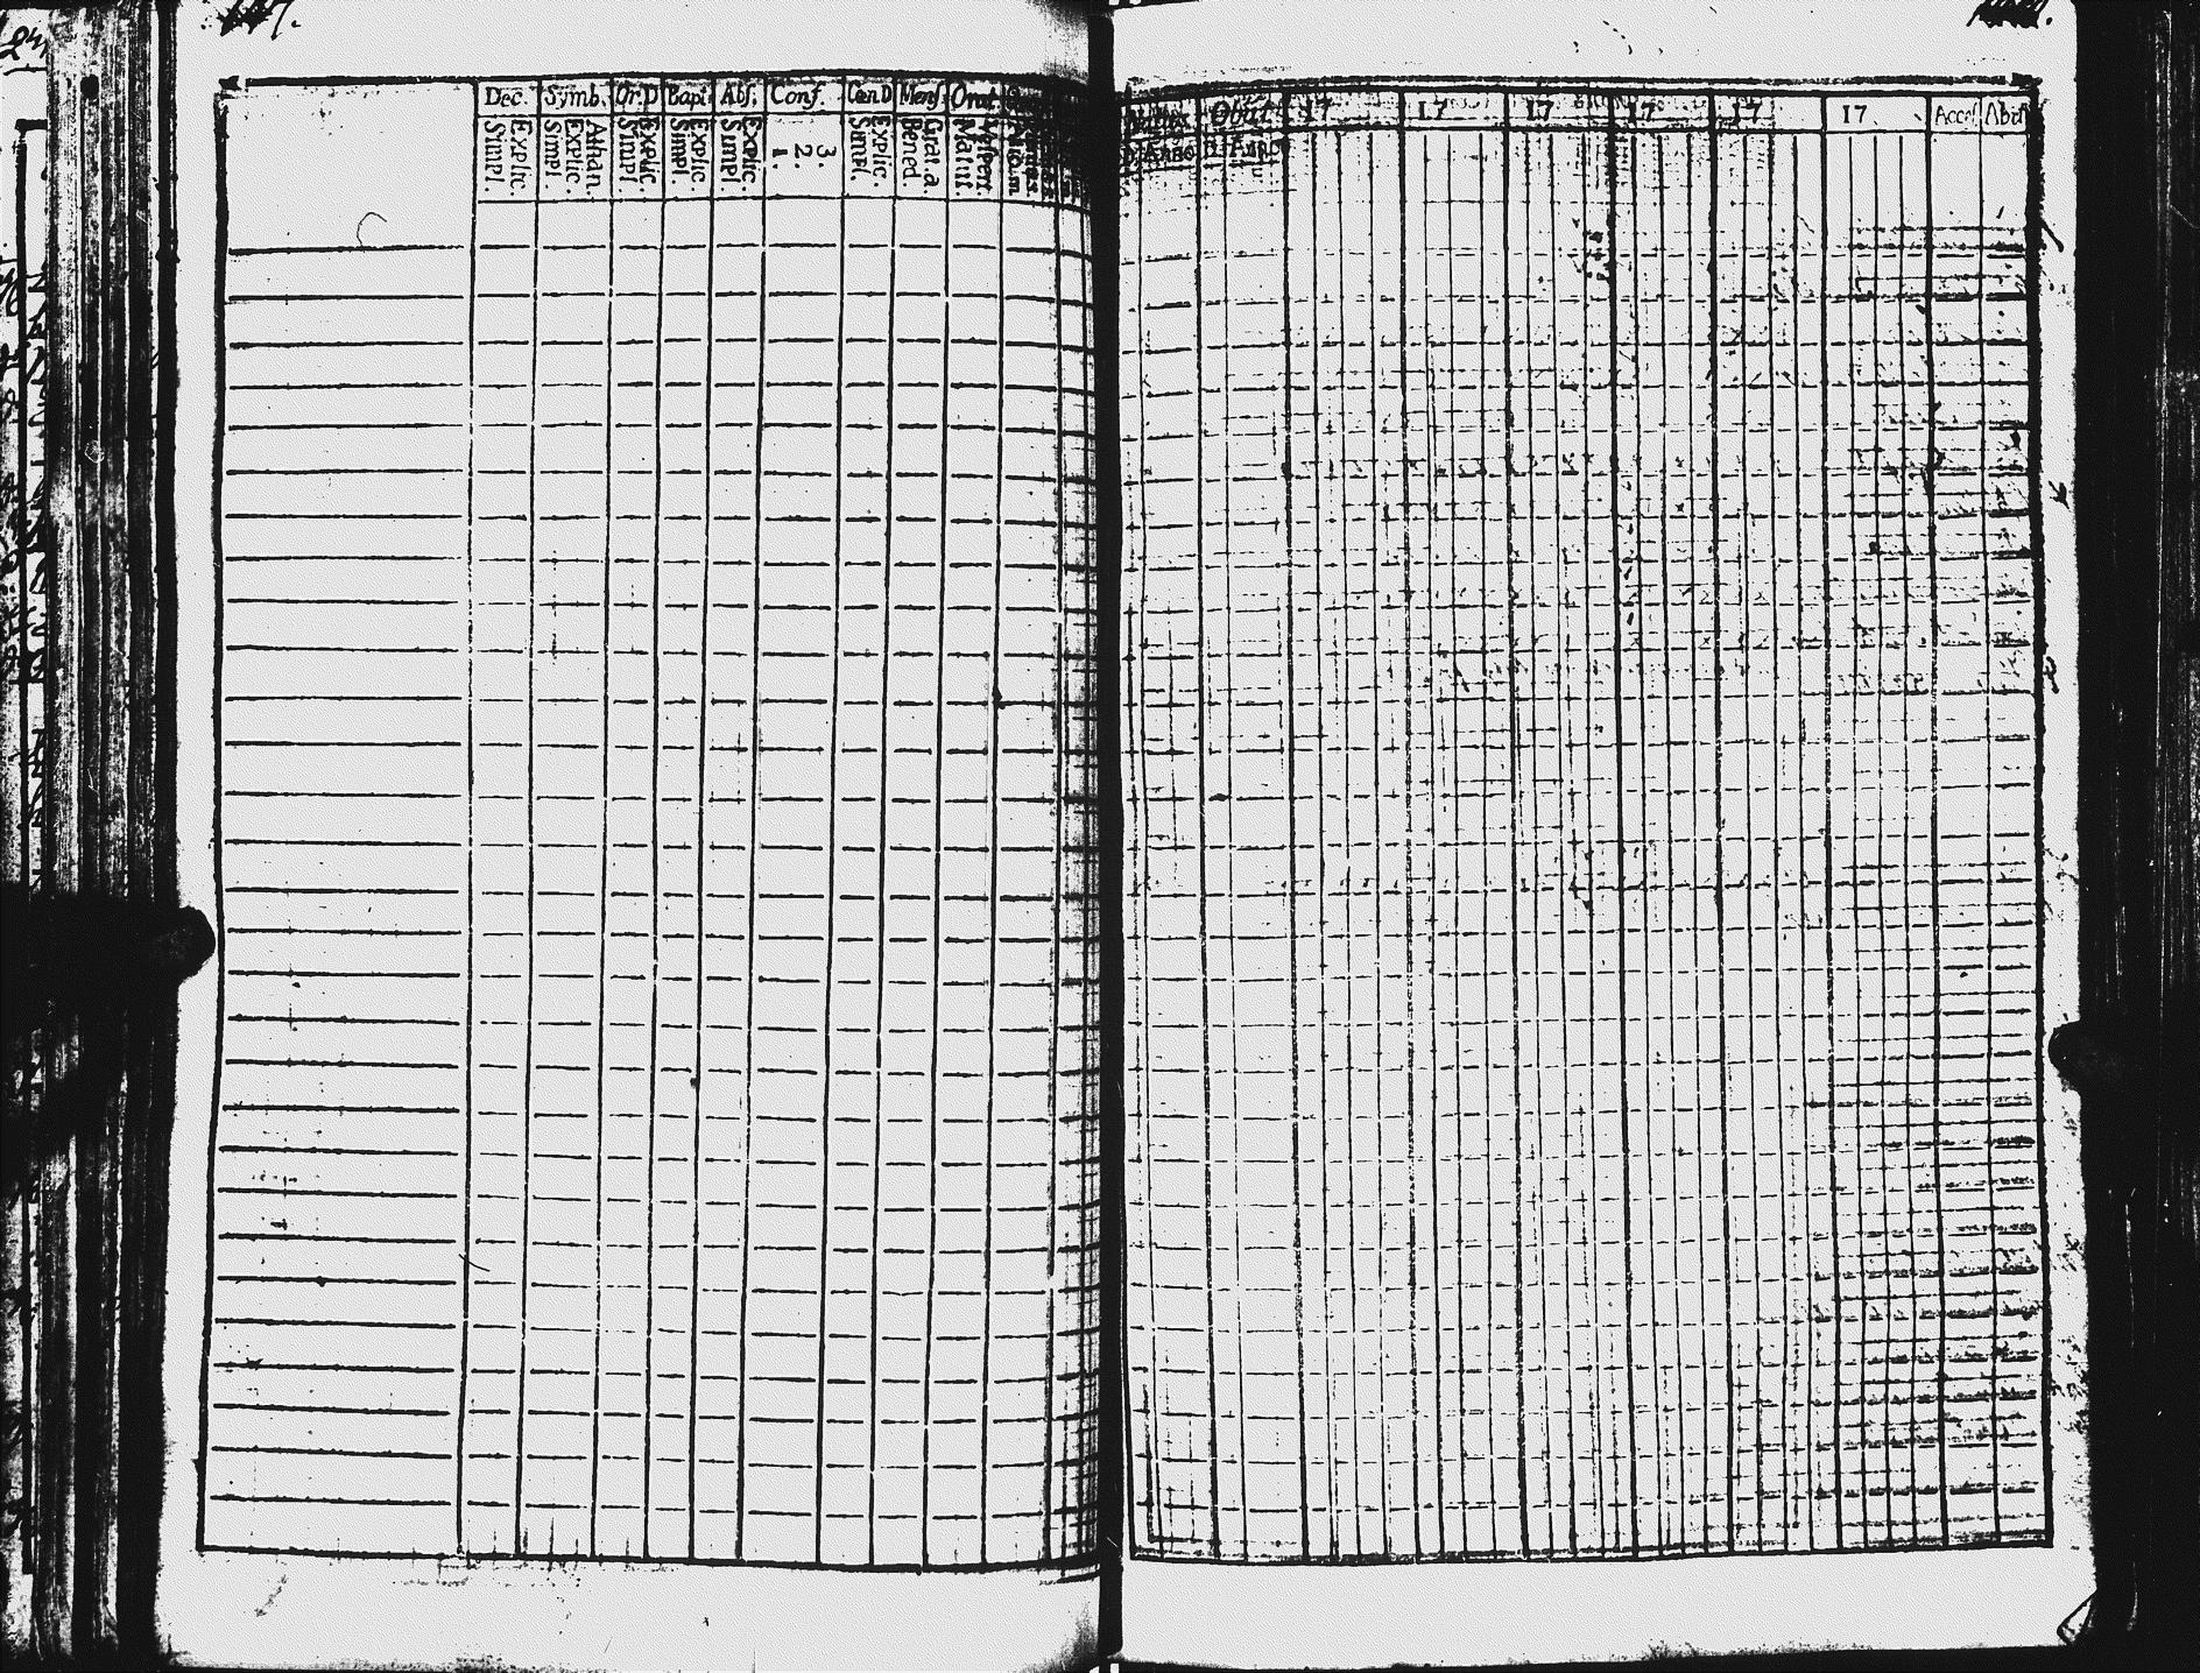 Dec. Symb. Or.D Bapt. Abs. Conf. CœnD Mens. Orat.
Simpl. Explic. Simpl. Explic. Athan. Simpl. Explic. Simpl. Explic. Simpl. Explic. 1. 2. 3. Simpl. Explic. Bened. Grat.a. Matut. Vespert.
Natus Obiit 17 17 17 17 17 17 Access. Abit
D. Anno D. Anno